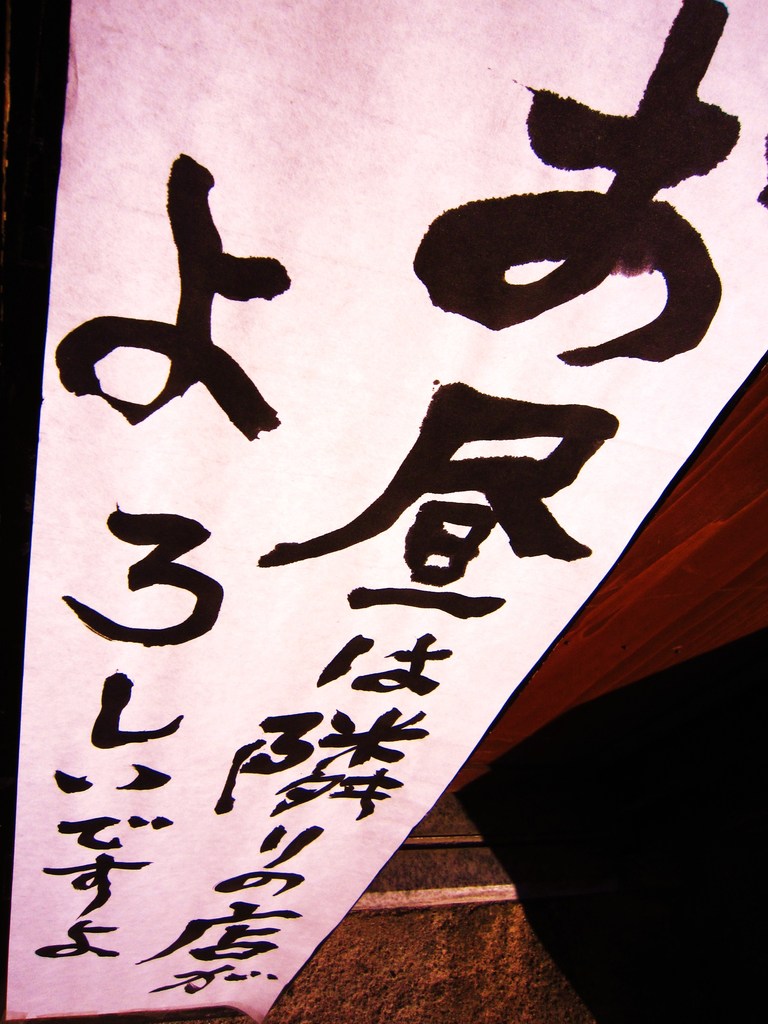 お昼は隣りの店が
よろしいですよ